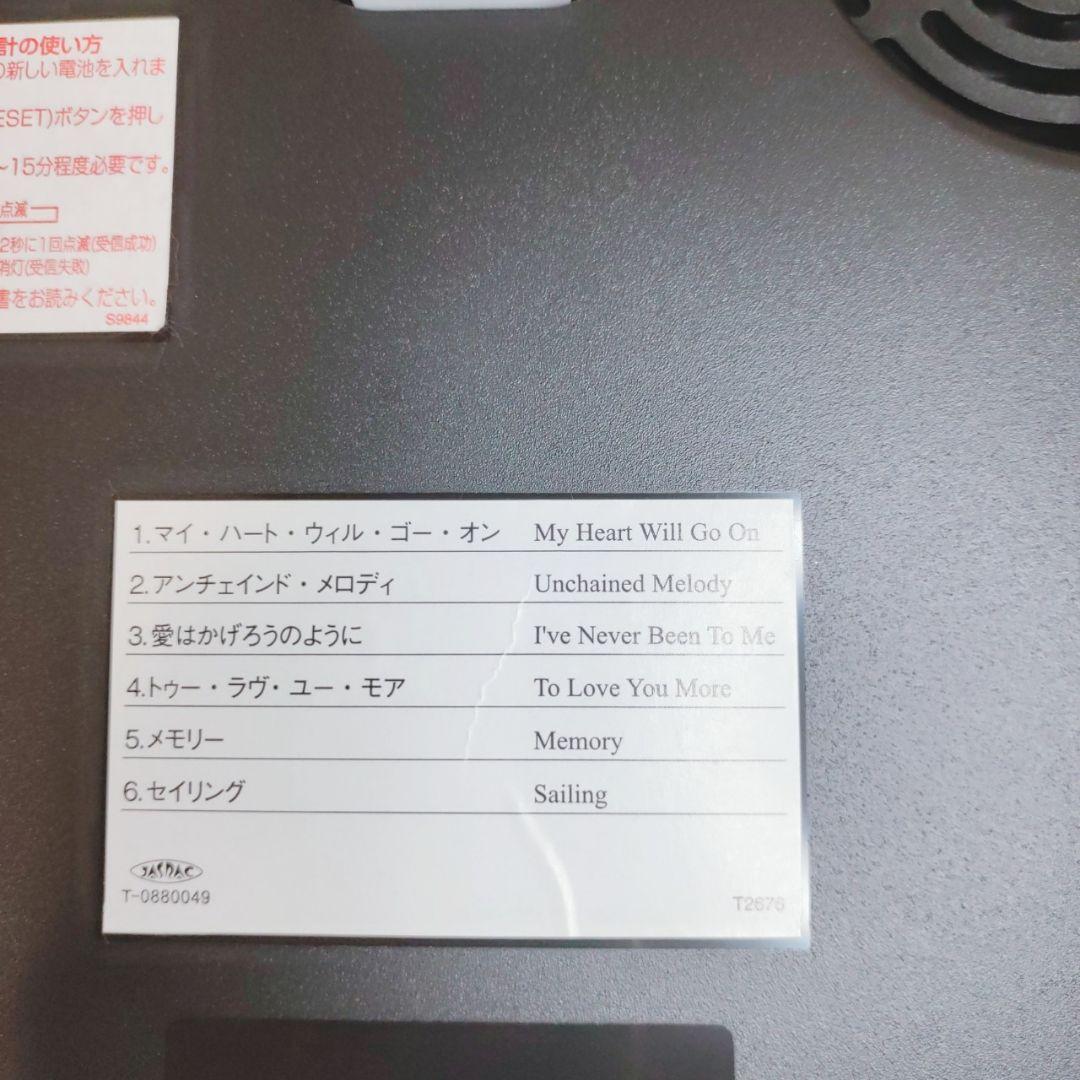 計の使い方
の新しい電池を入れま
ESET)ボタンを押し
~15分程度必要です。
点滅
2秒に1回点滅(受信成功)
消灯(受信失敗)
書をお読みください。
S9844
1.マイ・ハート・ウィル・ゴー・オン My Heart Will Go On
2.アンチェインド・メロディ Unchained Melody
3.愛はかげろうのように I've Never Been To Me
4.トゥー・ラヴ・ユー・モア To Love You More
5.メモリー Memory
6.セイリング Sailing
JASRAC
T-0880049
T2676